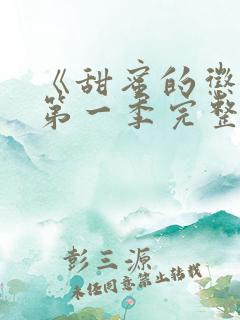 《甜蜜的惩
第一季完整
彭三源
未经同意禁止转载